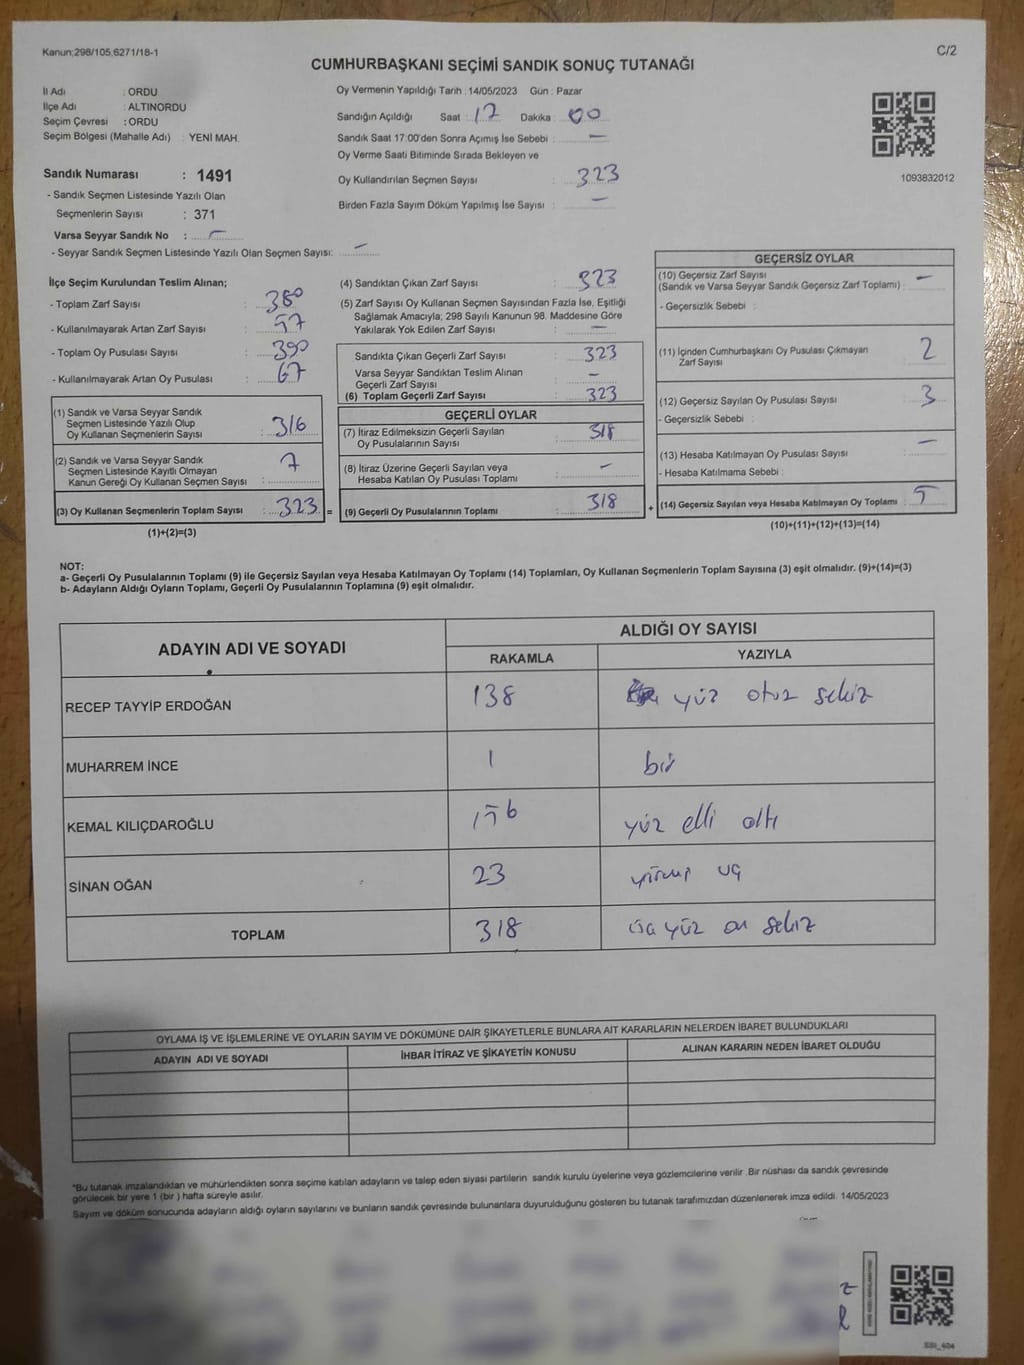 Kanun;298/105,6271/18-1
C/2
CUMHURBAŞKANI SEÇİMİ SANDIK SONUÇ TUTANAĞI
İl Adı : ORDU
İlçe Adı : ALTINORDU
Seçim Çevresi : ORDU
Seçim Bölgesi (Mahalle Adı) : YENİ MAH.
Sandık Numarası : 1491
- Sandık Seçmen Listesinde Yazılı Olan
Seçmenlerin Sayısı : 371
Varsa Seyyar Sandık No : -
- Seyyar Sandık Seçmen Listesinde Yazılı Olan Seçmen Sayısı: -
Oy Vermenin Yapıldığı Tarih : 14/05/2023 Gün : Pazar
Sandığın Açıldığı Saat : 17 Dakika : 00
Sandık Saat 17:00'den Sonra Açımış İse Sebebi : -
Oy Verme Saati Bitiminde Sırada Bekleyen ve
Oy Kullandırılan Seçmen Sayısı : 323
Birden Fazla Sayım Döküm Yapılmış İse Sayısı : -
1093832012
İlçe Seçim Kurulundan Teslim Alınan;
- Toplam Zarf Sayısı : 380
- Kullanılmayarak Artan Zarf Sayısı : 57
- Toplam Oy Pusulası Sayısı : 390
- Kullanılmayarak Artan Oy Pusulası : 67
(1) Sandık ve Varsa Seyyar Sandık
Seçmen Listesinde Yazılı Olup
Oy Kullanan Seçmenlerin Sayısı : 316
(2) Sandık ve Varsa Seyyar Sandık
Seçmen Listesinde Kayıtlı Olmayan
Kanun Gereği Oy Kullanan Seçmen Sayısı : 7
(3) Oy Kullanan Seçmenlerin Toplam Sayısı : 323 =
(1)+(2)=(3)
(4) Sandıktan Çıkan Zarf Sayısı : 323
(5) Zarf Sayısı Oy Kullanan Seçmen Sayısından Fazla İse, Eşitliği
Sağlamak Amacıyla; 298 Sayılı Kanunun 98. Maddesine Göre
Yakılarak Yok Edilen Zarf Sayısı : -
Sandıkta Çıkan Geçerli Zarf Sayısı : 323
Varsa Seyyar Sandıktan Teslim Alınan
Geçerli Zarf Sayısı : -
(6) Toplam Geçerli Zarf Sayısı : 323
GEÇERLİ OYLAR
(7) İtiraz Edilmeksizin Geçerli Sayılan
Oy Pusulalarının Sayısı : 318
(8) İtiraz Üzerine Geçerli Sayılan veya
Hesaba Katılan Oy Pusulası Toplamı : -
(9) Geçerli Oy Pusulalarının Toplamı : 318 +
GEÇERSİZ OYLAR
(10) Geçersiz Zarf Sayısı
(Sandık ve Varsa Seyyar Sandık Geçersiz Zarf Toplamı) : -
- Geçersizlik Sebebi :
(11) İçinden Cumhurbaşkanı Oy Pusulası Çıkmayan
Zarf Sayısı : 2
(12) Geçersiz Sayılan Oy Pusulası Sayısı : 3
- Geçersizlik Sebebi :
(13) Hesaba Katılmayan Oy Pusulası Sayısı : -
- Hesaba Katılmama Sebebi :
(14) Geçersiz Sayılan veya Hesaba Katılmayan Oy Toplamı : 5
(10)+(11)+(12)+(13)=(14)
NOT:
a- Geçerli Oy Pusulalarının Toplamı (9) ile Geçersiz Sayılan veya Hesaba Katılmayan Oy Toplamı (14) Toplamları, Oy Kullanan Seçmenlerin Toplam Sayısına (3) eşit olmalıdır. (9)+(14)=(3)
b- Adayların Aldığı Oyların Toplamı, Geçerli Oy Pusulalarının Toplamına (9) eşit olmalıdır.
ADAYIN ADI VE SOYADI
ALDIĞI OY SAYISI
RAKAMLA YAZIYLA
RECEP TAYYİP ERDOĞAN 138 yüz otuz sekiz
MUHARREM İNCE 1 bir
KEMAL KILIÇDAROĞLU 156 yüz elli altı
SİNAN OĞAN 23 yirmi üç
TOPLAM 318 yüz on sekiz
OYLAMA İŞ VE İŞLEMLERİNE VE OYLARIN SAYIM VE DÖKÜMÜNE DAİR ŞİKAYETLERLE BUNLARA AİT KARARLARIN NELERDEN İBARET BULUNDUKLARI
ADAYIN ADI VE SOYADI İHBAR İTİRAZ VE ŞİKAYETİN KONUSU ALINAN KARARIN NEDEN İBARET OLDUĞU
*Bu tutanak imzalandıktan ve mühürlendikten sonra seçime katılan adayların ve talep eden siyasi partilerin sandık kurulu üyelerine veya gözlemcilerine verilir. Bir nüshası da sandık çevresinde
görülecek bir yere 1 (bir ) hafta süreyle asılır.
Sayım ve döküm sonucunda adayların aldığı oyların sayılarını ve bunların sandık çevresinde bulunanlara duyurulduğunu gösteren bu tutanak tarafımızdan düzenlenerek imza edildi. 14/05/2023